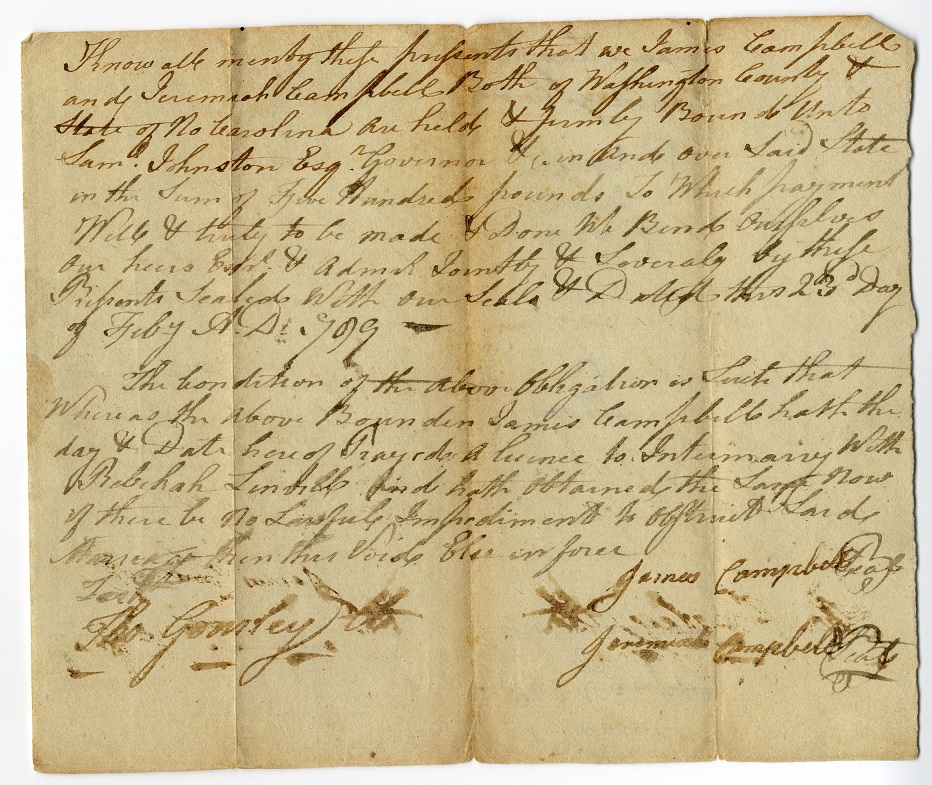 Know all men by these presents that we James Campbell
and Jeremiah Campbell Both of Washington County &
State of No Carolina are held & firmly Bound Unto
Saml. Johnston Esqr. Governor & in and over Said State
in the Sum of Five Hundred pounds To Which payment
Well & truly to be made & Done We Bind Ourselves
our heirs Exrs. & Admrs Jointly & Severaly by these
Presents Sealed With our Seals & Dated this 23d Day
of Feby A.D. 1789
The Condition of the above Obligation is Such that
Whereas the above Bounden James Campbell hath the
day & Date hereof Prayed A licence to Intermarry With
Rebekah Linvill and hath Obtained the Same Now
if there be No Lawful Impediment to Obstruct Said
Marriage then this Void Else in force
Test
Tho. Gourley
James Campbell Seal
Jeremiah Campbell Seal